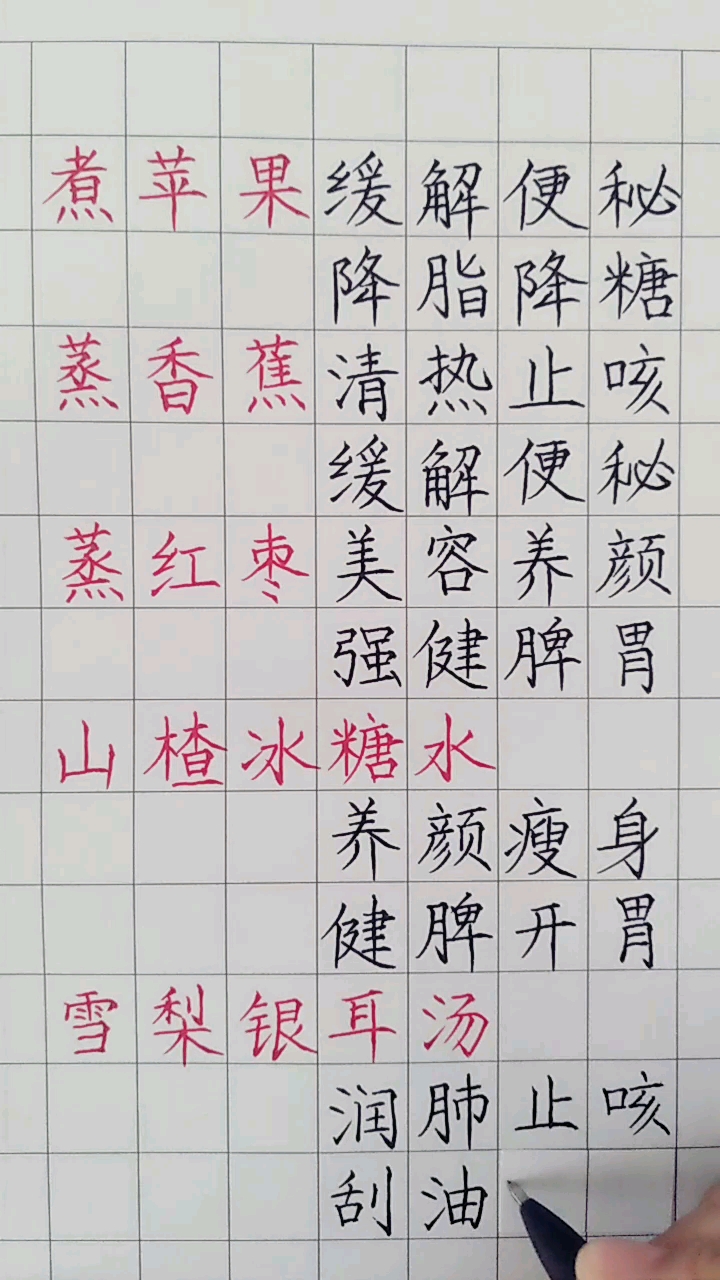 煮苹果缓解便秘
降脂降糖
蒸香蕉清热止咳
缓解便秘
蒸红枣美容养颜
强健脾胃
山楂冰糖水
养颜瘦身
健脾开胃
雪梨银耳汤
润肺止咳
刮油